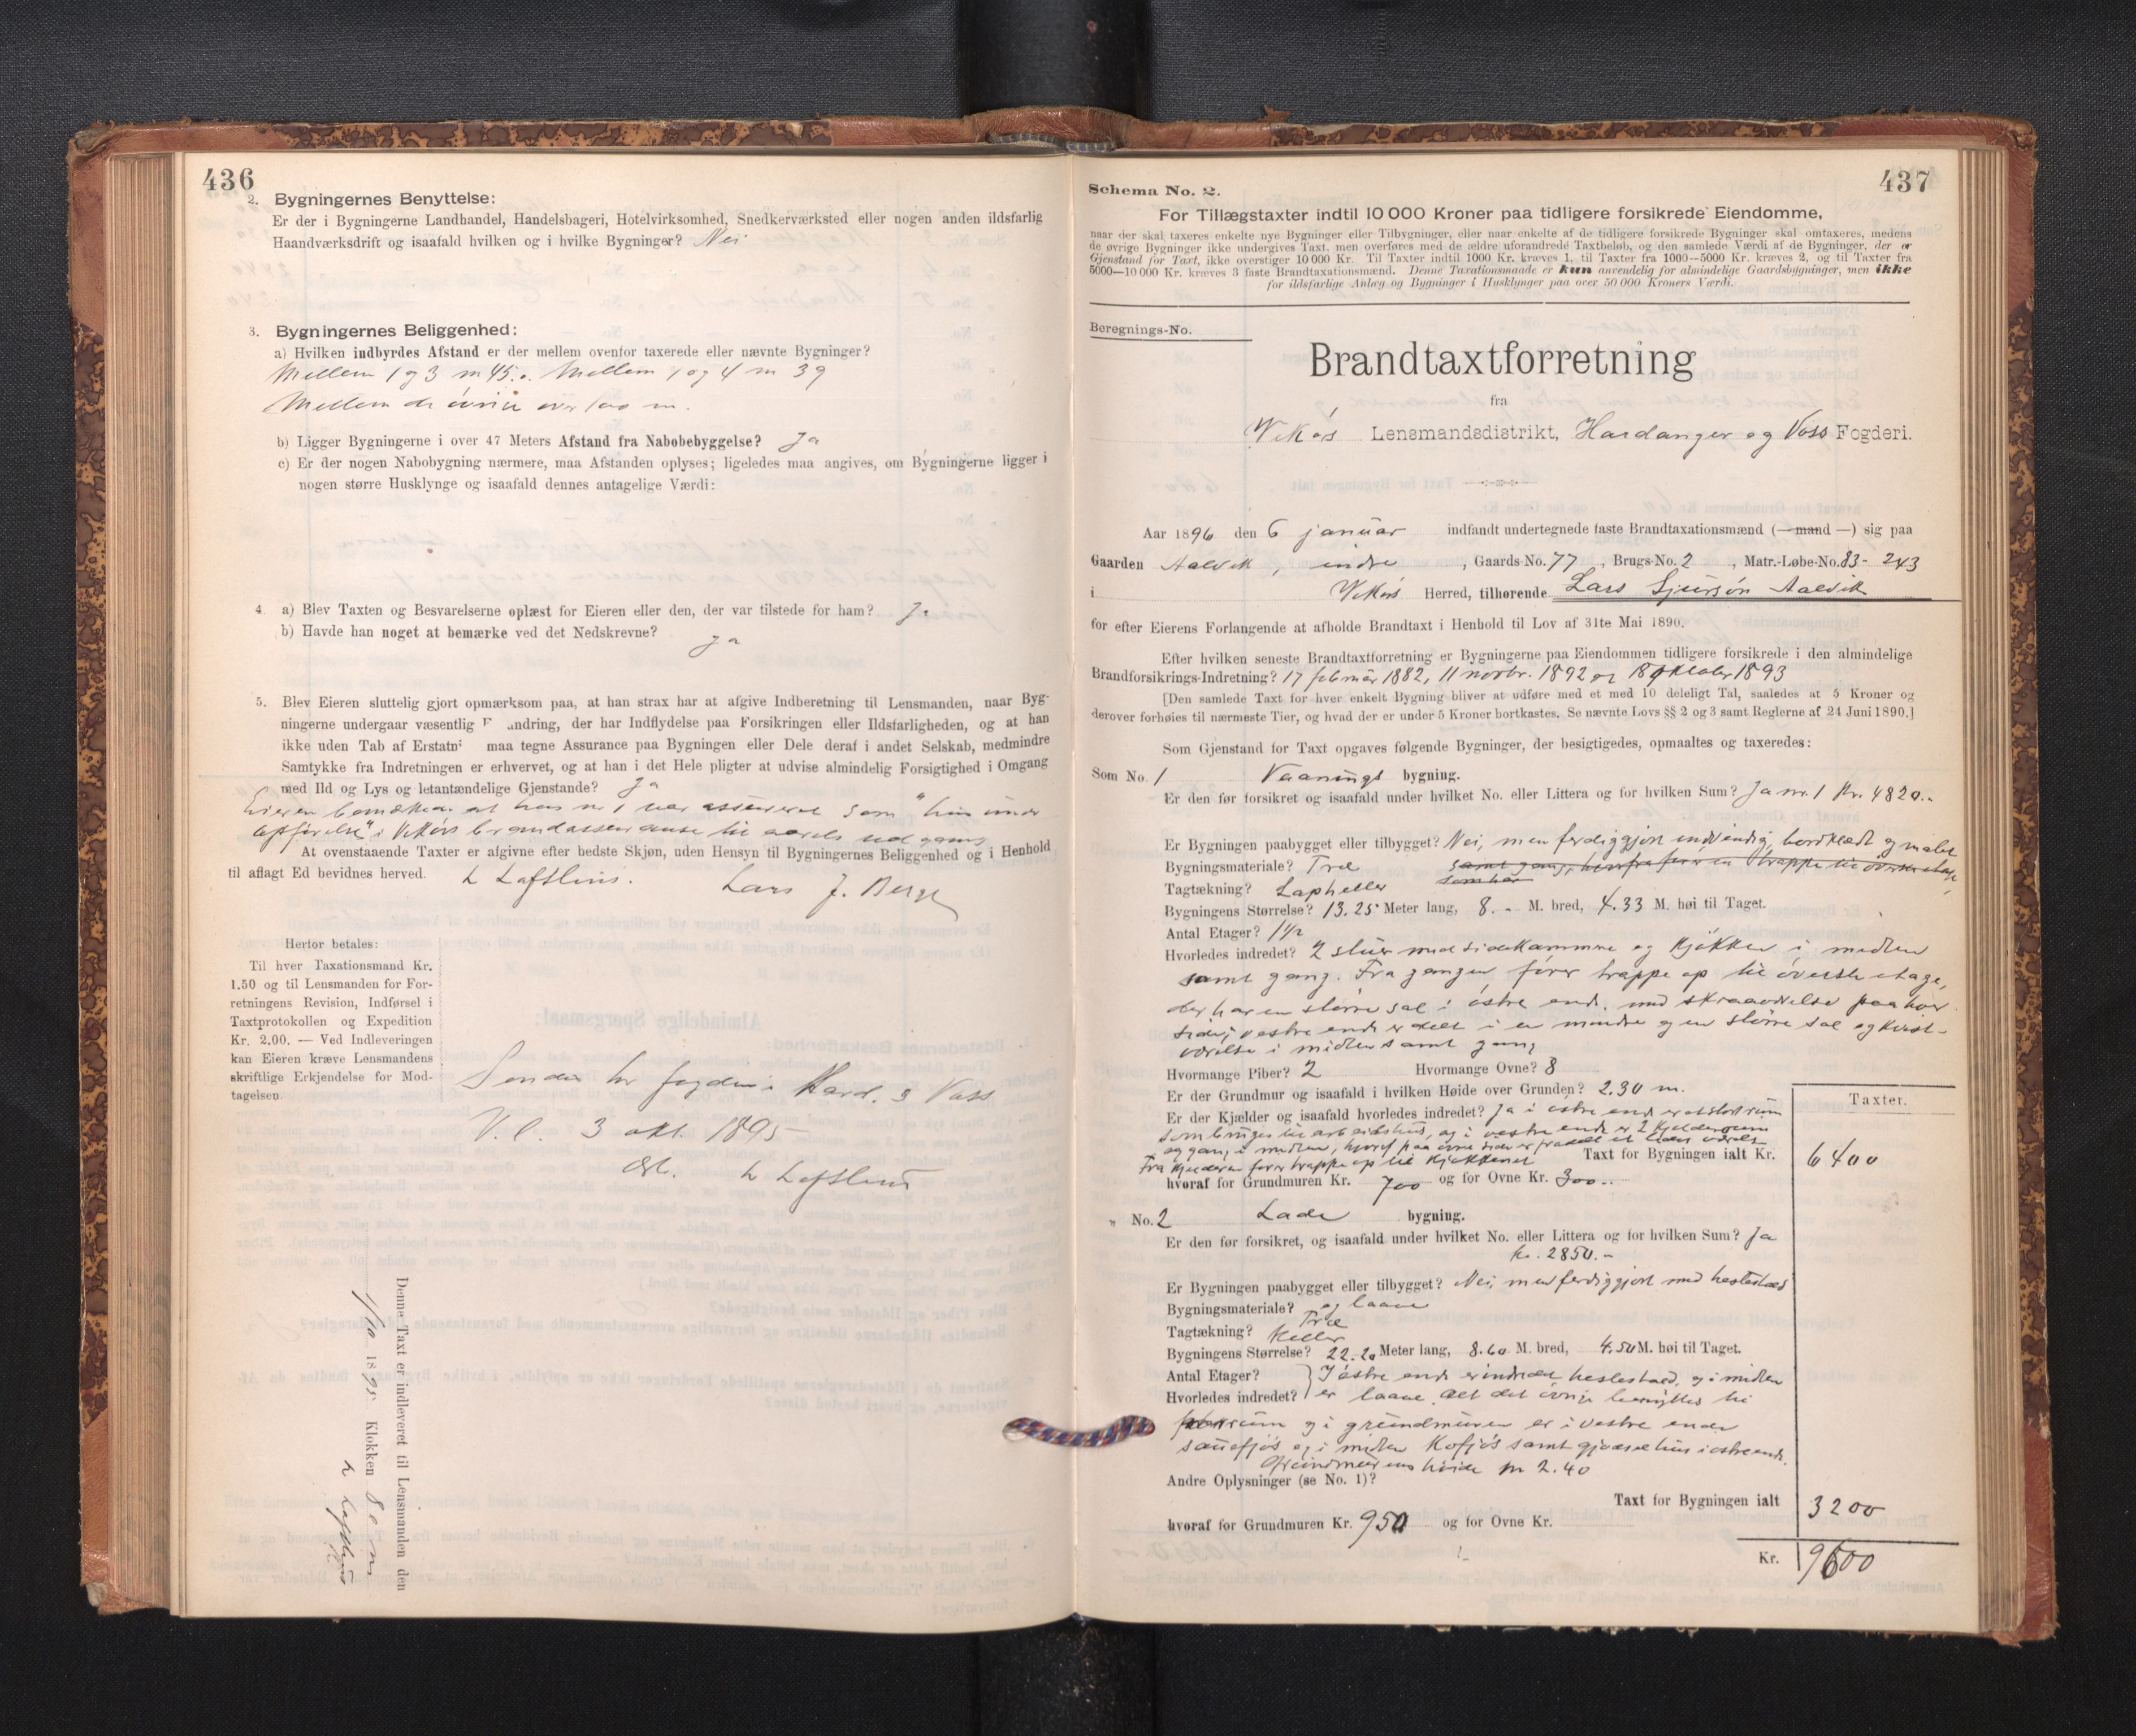 436
2. Bygningernes Benyttelse:
Er der i Bygningerne Landhandel, Handelsbageri, Hotelvirksomhed, Snedkerværksted eller nogen anden ildsfarlig
Haandværksdrift og isaafald hvilken og i hvilke Bygninger? Nei
3. Bygningernes Beliggenhed:
a) Hvilken indbyrdes Afstand er der mellem ovenfor taxerede eller nævnte Bygninger?
Mellem 1 og 3 m 45. Mellem 1 og 4 m 39
Mellem de øvrie over 100 m.
b) Ligger Bygningerne i over 47 Meters Afstand fra Nabobebyggelse? Ja
c) Er der nogen Nabobygning nærmere, maa Afstanden oplyses; ligeledes maa angives, om Bygningerne ligger i
nogen større Husklynge og isaafald dennes antagelige Værdi:
4. a) Blev Taxten og Besvarelserne oplæst for Eieren eller den, der var tilstede for ham? Ja
b) Havde han noget at bemærke ved det Nedskrevne?
Ja
5. Blev Eieren sluttelig gjort opmærksom paa, at han strax har at afgive Indberetning til Lensmanden, naar Byg-
ningerne undergaar væsentlig F andring, der har Indflydelse paa Forsikringen eller Ildsfarligheden, og at han
ikke uden Tab af Erstatni maa tegne Assurance paa Bygningen eller Dele deraf i andet Selskab, medmindre
Samtykke fra Indretningen er erhvervet, og at han i det Hele pligter at udvise almindelig Forsigtighed i Omgang
med Ild og Lys og letantændelige Gjenstande? Ja
Eieren bemærker at hus nr 1 var assureret som "hus under
opførelse" i Vikørs brandassurance til aarets udgang
At ovenstaaende Taxter er afgivne efter bedste Skjøn, uden Hensyn til Bygningernes Beliggenhed og i Henhold
til aflagt Ed bevidnes herved. L Lofthus. Lars J. Berge
Herfor betales:
Til hver Taxationsmand Kr.
1.50 og til Lensmanden for For-
retningens Revision, Indførsel i
Taxtprotokollen og Expedition
Kr. 2.00. — Ved Indleveringen
kan Eieren kræve Lensmandens
skriftlige Erkjendelse for Mod-
tagelsen
Sendes hr fogden i Hard. & Voss
V. l. 3 okt. 1895
L Lofthus
Denne Taxt er indleveret til Lensmanden den
1/10 1895 Klokken 8 em
L Lofthus
437
Schema No. 2.
For Tillægstaxter indtil 10 000 Kroner paa tidligere forsikrede Eiendomme,
naar der skal taxeres enkelte nye Bygninger eller Tilbygninger, eller naar enkelte af de tidligere forsikrede Bygninger skal omtaxeres, medens
de øvrige Bygninger ikke undergives Taxt, men overføres med de ældre uforandrede Taxtbeløb, og den samlede Værdi af de Bygninger, der er
Gjenstand for Taxt, ikke overstiger 10 000 Kr. Til Taxter indtil 1000 Kr. kræves 1, til Taxter fra 1000—5000 Kr. kræves 2, og til Taxter fra
5000—10 000 Kr. kræves 3 faste Brandtaxationsmænd. Denne Taxationsmaade er kun anvendelig for almindelige Gaardsbygninger, men ikke
for ildsfarlige Anlæg og Bygninger i Husklynger paa over 50 000 Kroners Værdi.
Beregnings-No.
Brandtaxtforretning
fra
Vikørs Lensmandsdistrikt, Hardanger og Voss Fogderi.
Aar 1896 den 6 januar indfandt undertegnede faste Brandtaxationsmænd (— mand —) sig paa
Gaarden Aalvik, indre, Gaards-No. 77, Brugs-No. 2, Matr.-Løbe-No. 83 - 243
i Vikørs Herred, tilhørende Lars Sjursøn Aalvik
for efter Eierens Forlangende at afholde Brandtaxt i Henhold til Lov af 31te Mai 1890.
Efter hvilken seneste Brandtaxtforretning er Bygningerne paa Eiendommen tidligere forsikrede i den almindelige
Brandforsikrings-Indretning? 17 februar 1882, 11 novbr. 1892 og 18 oktober 1893
[Den samlede Taxt for hver enkelt Bygning bliver at udføre med et med 10 deleligt Tal, saaledes at 5 Kroner og
derover forhøies til nærmeste Tier, og hvad der er under 5 Kroner bortkastes. Se nævnte Lovs §§ 2 og 3 samt Reglerne af 24 Juni 1890.]
Som Gjenstand for Taxt opgaves følgende Bygninger, der besigtigedes, opmaaltes og taxeredes:
Som No. 1 Vaanings bygning.
Er den før forsikret og isaafald under hvilket No. eller Littera og for hvilken Sum? Ja nr. 1 Kr. 4820..
Er Bygningen paabygget eller tilbygget? Nei, men ferdiggjort indvendig, bordklædt og malet
Bygningsmateriale? Træ samt gang, hvorfra fører en trappe til øverste etage,
Tagtækning? Lapheller som har
Bygningens Størrelse? 13.25 Meter lang, 8. - M. bred, 4.33 M. høi til Taget.
Antal Etager? 1½
Hvorledes indredet? 2 stuer med sidekammere og kjøkken i midten
samt gang. Fra gangen fører trappe op til øverste etage,
der har en større sal i østre ende med skraaværelse paa hver
side; vestre ende er delt i en mindre og en større sal og kvist-
værelse i midten samt gang
Hvormange Piber? 2 Hvormange Ovne? 8
Er der Grundmur og isaafald i hvilken Høide over Grunden? 2.30 m.
Er der Kjælder og isaafald hvorledes indredet? Ja i østre ende er et stort rum
som bruges til arbeidshus, og i vestre ende er 2 kjelderrum
og gang i midten, hvoraf paa øvre side er fradelt et lidet værelse
Fra kjelderen fører trappe op til kjøkkenet Taxt for Bygningen ialt Kr.
hvoraf for Grundmuren Kr. 700 og for Ovne Kr. 300..
Taxter.
6400
" No. 2 Lade bygning.
Er den før forsikret, og isaafald under hvilket No. eller Littera og for hvilken Sum? Ja
kr. 2850.-
Er Bygningen paabygget eller tilbygget? Nei, men ferdiggjort med hestestald
Bygningsmateriale? og laave
Træ
Tagtækning? Heller
Bygningens Størrelse? 22.20 Meter lang, 8.60 M. bred, 4.50 M. høi til Taget.
Antal Etager? I østre ende er indredet hestestald, og i midten
Hvorledes indredet? er laave. Alt det øvrige benyttes til
rum og i grundmuren er i vestre ende
sauefjøs og i midten kofjøs samt gjødselhus i østre ende.
Grundmurens høide m 2.40
Andre Oplysninger (se No. 1)?
Taxt for Bygningen ialt 3200
hvoraf for Grundmuren Kr. 950 og for Ovne Kr.
Kr. 9600